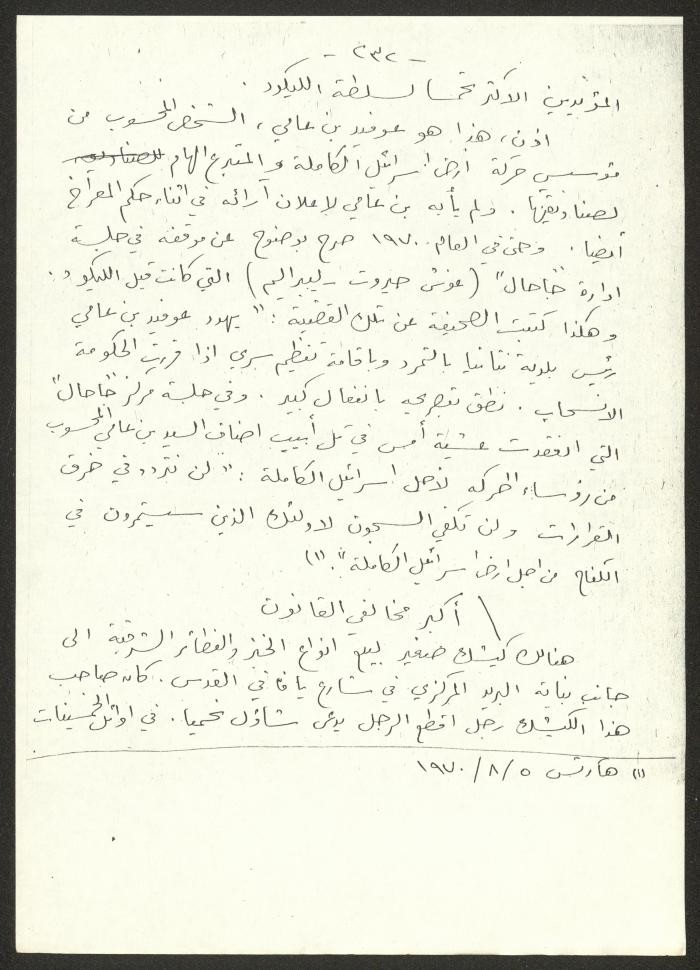 - ٢٣٢ -
المؤيدين الاكثر تحمسا لسلطة الليكود.
اذن، هذا هو عوفيد بن عامي، الشخص المحسوب من
مؤسسي حركة أرض اسرائيل الكاملة والمتبرع الهام
لصناديقها. ولم يأبه بن عامي لاعلان آرائه في اثناء حكم المعراخ
أيضا. وحتى في العام ١٩٧٠ صرح بوضوح عن موقفه في جلسة
ادارة "غاحال" (غوش حيروت - ليبراليم) التي كانت قبل الليكود.
وهكذا كتبت الصحيفة عن تلك القضية: "يهدد عوفيد بن عامي
رئيس بلدية نتانيا بالتمرد وباقامة تنظيم سري اذا قررت الحكومة
الانسحاب. نطق تصريحه بانفعال كبير. وفي جلسة مركز "غاحال"
التي انعقدت عشية أمس في تل أبيب اضاف السيد بن عامي المحسوب
من رؤساء الحركه لأجل اسرائيل الكاملة: "لن نتردد في خرق
القرارات ولن تكفي السجون لاولئك الذين سيستمرون في
الكفاح من اجل ارض اسرائيل الكاملة". (١)
أكبر مخالفي القانون
هنالك كيشك صغير لبيع انواع الخبز والفطائر الشرقية الى
جانب بناية البريد المركزي في شارع يافا في القدس. كان صاحب
هذا الكشك رجل اقطع الرجل يدعى شاؤل نحميا. في اوائل الخمسينات
(١) هآرتس ٥/٨/١٩٧٠